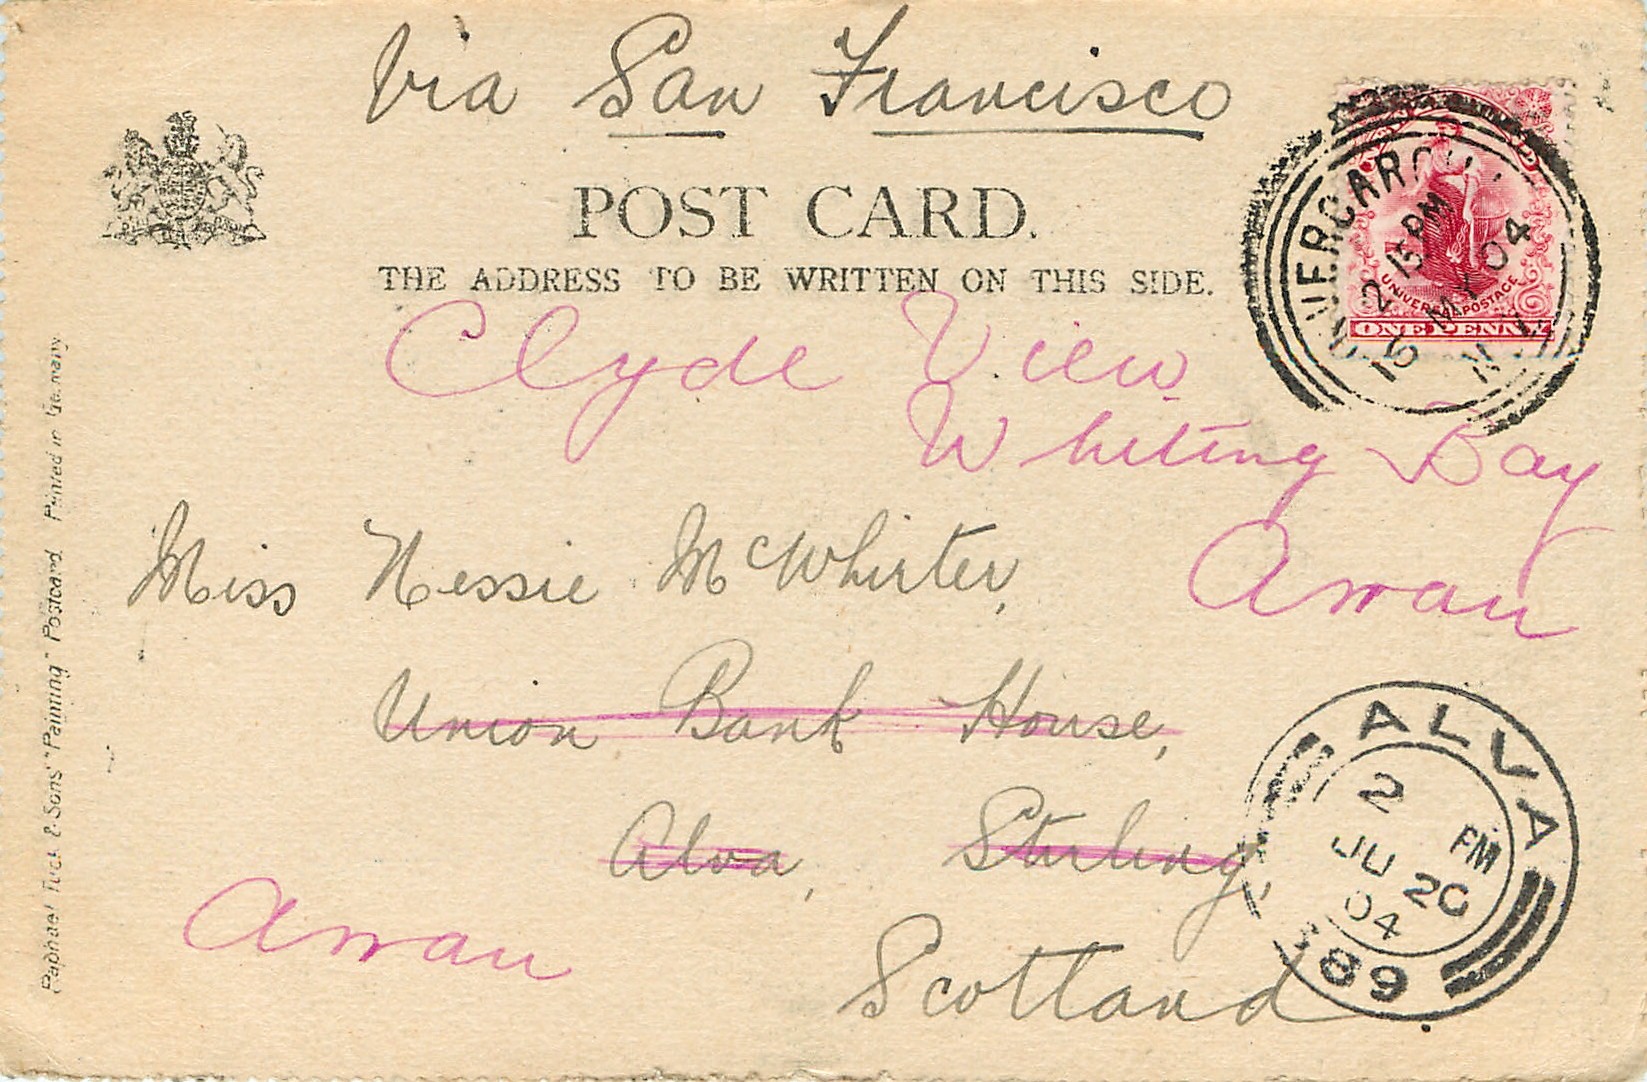 Via San Francisco
POST CARD.
THE ADDRESS TO BE WRITTEN ON THIS SIDE.
2 15 PM
15 MY 04
N.Z.
UNIVERSAL POSTAGE
ONE PENNY
Clyde View
Whiting Bay
Arran
Miss Nessie McWhirter,
Union Bank House,
Alva, Stirling,
Arran
Scotland
ALVA
2 PM
JU 20
04
89
Raphael Tuck & Sons' "Painting" Postcard Printed in Germany